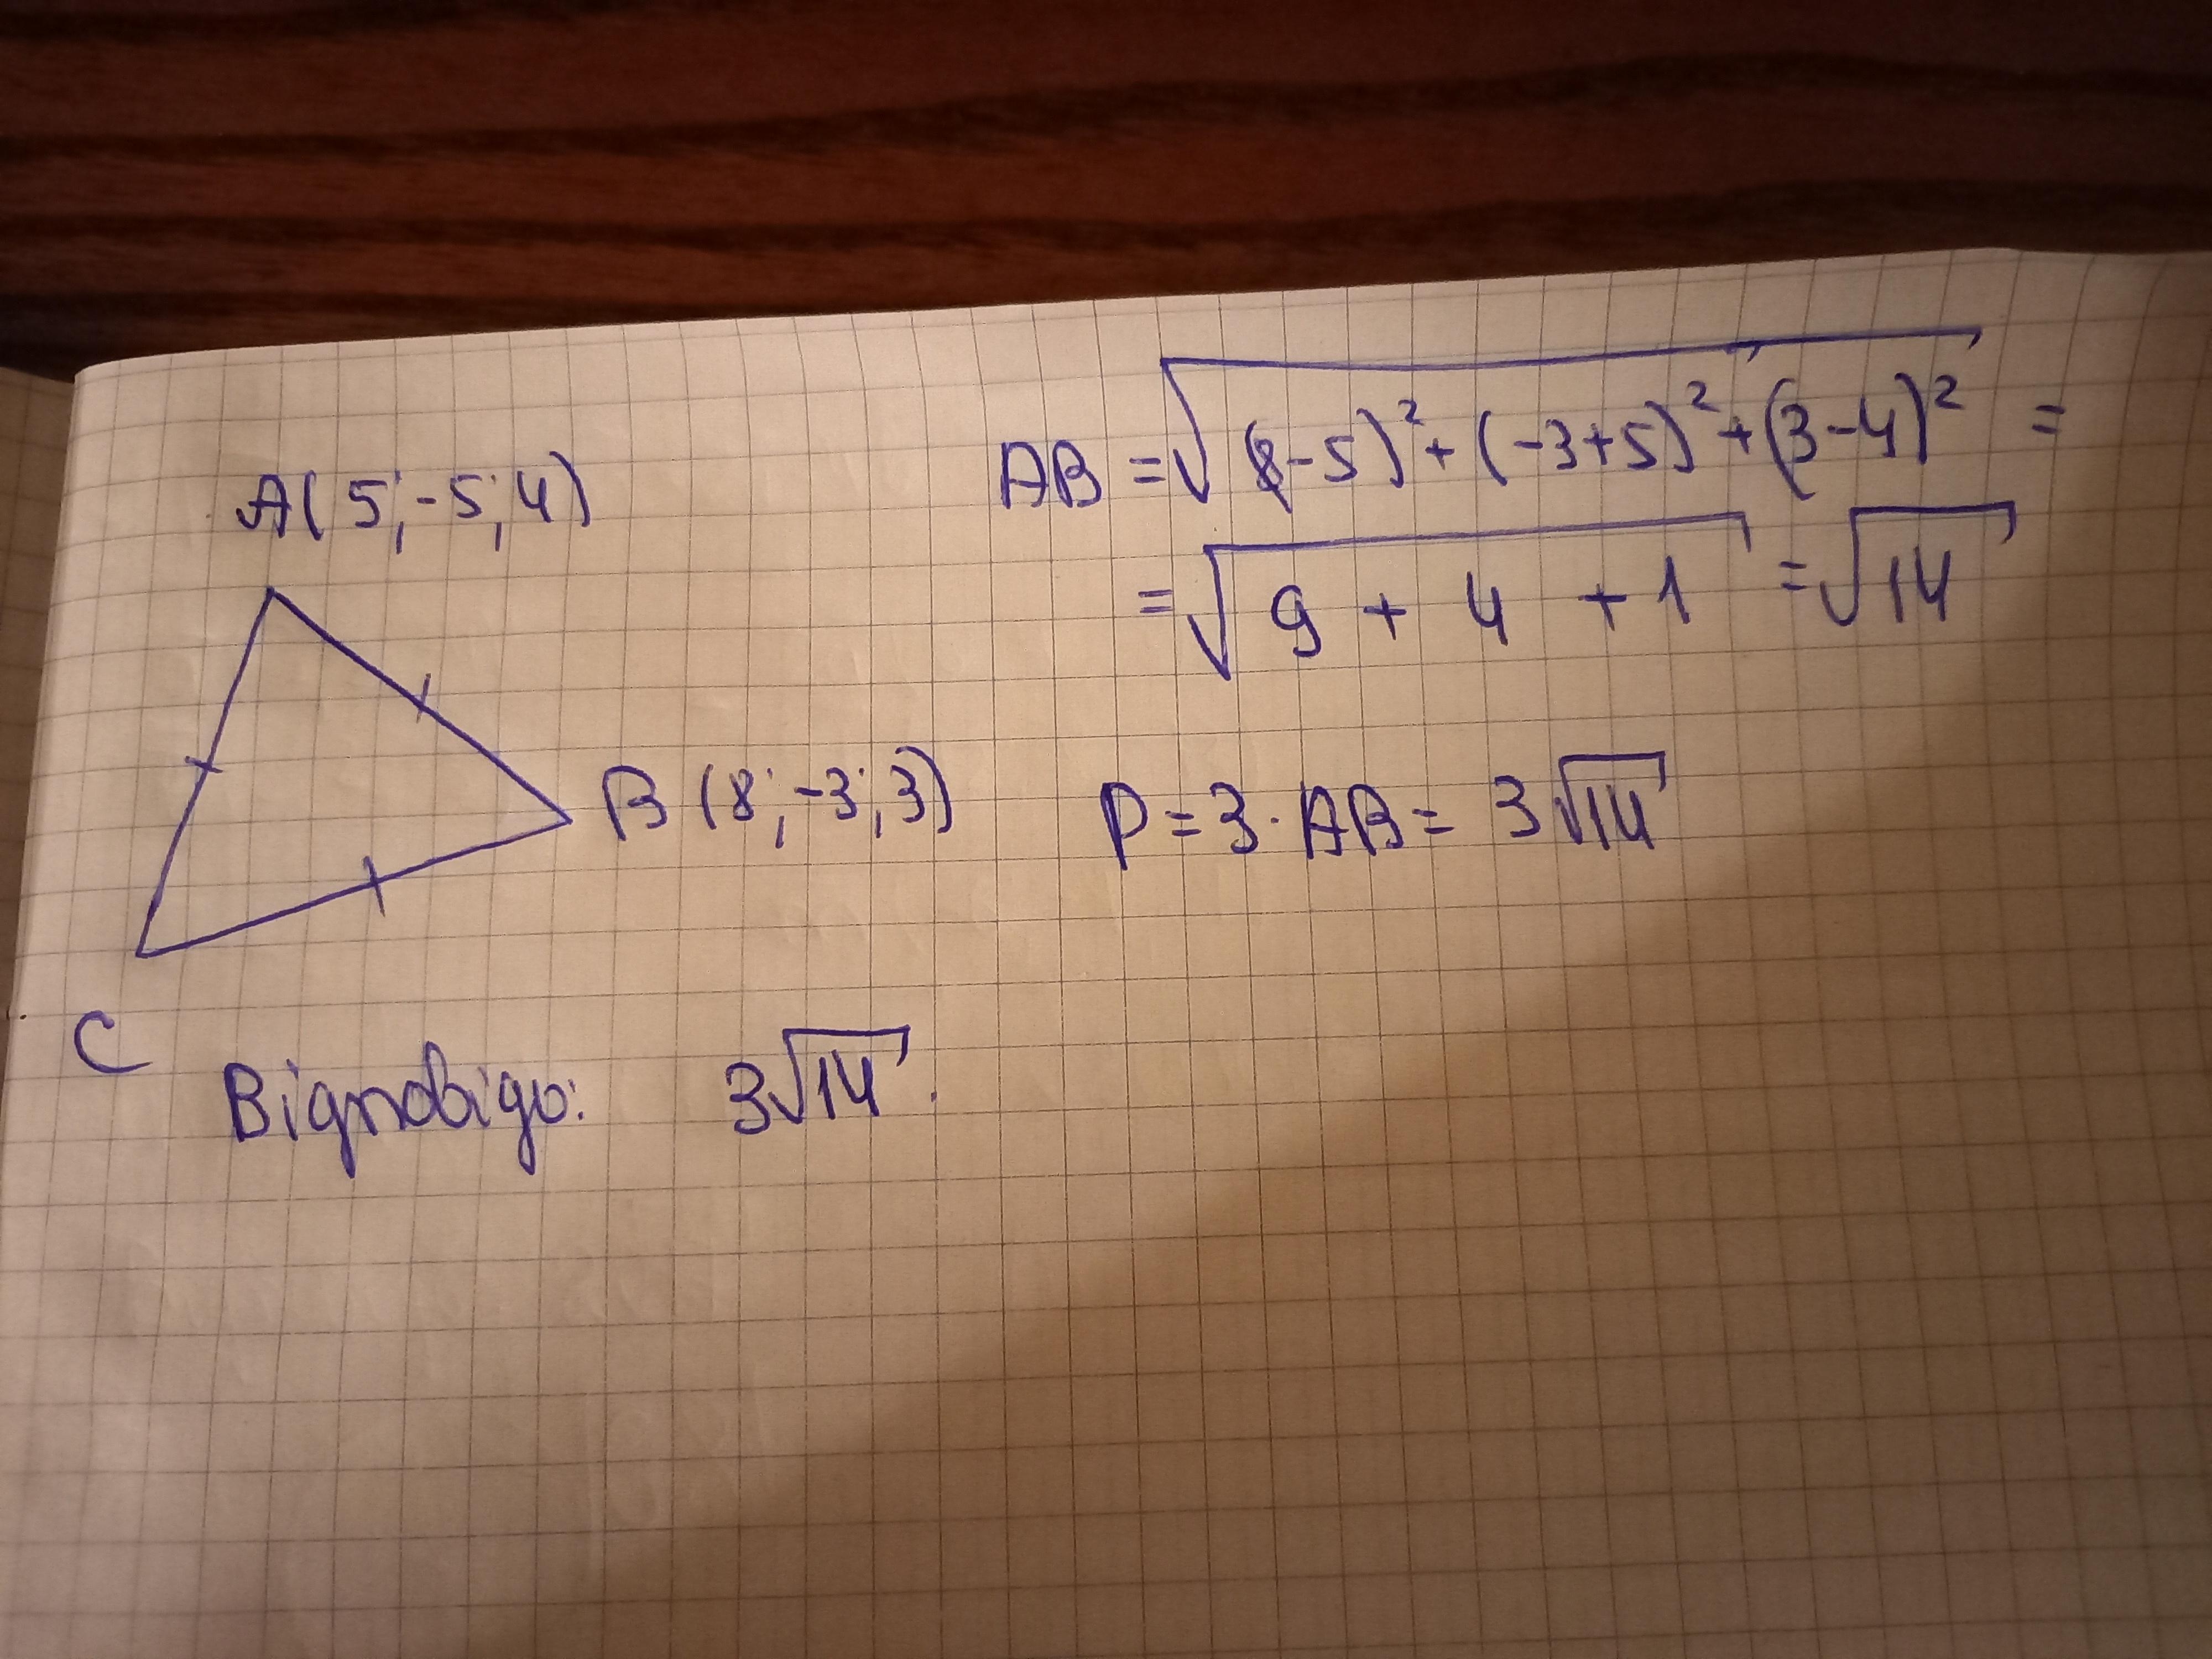 A(5;-5;4)
AB = √((8-5)² + (-3+5)² + (3-4)²) =
= √(9 + 4 + 1) = √14
B (8;-3;3)
P = 3 · AB = 3√14
C
Відповідь: 3√14.